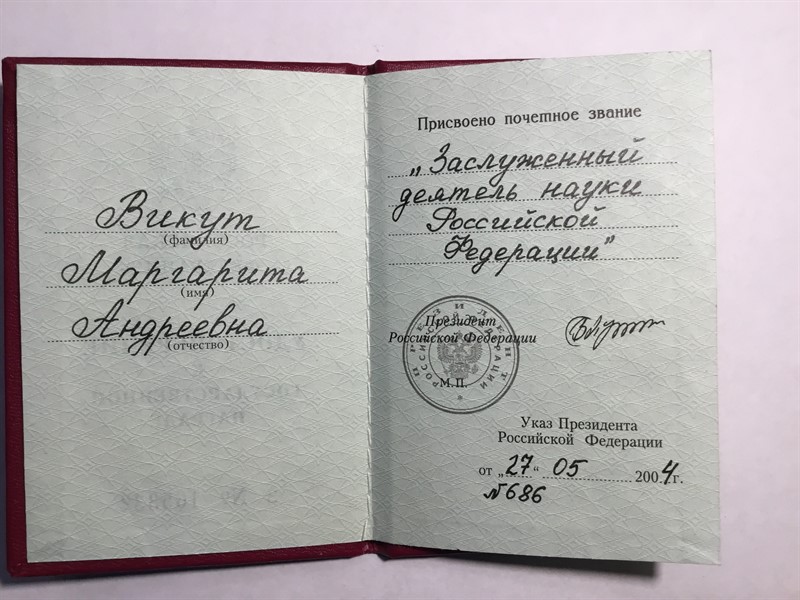 Викут
(фамилия)
Маргарита
(имя)
Андреевна
(отчество)
Присвоено почетное звание
„Заслуженный
деятель науки
Российской
Федерации"
Президент
Российской Федерации
ПРЕЗИДЕНТ
РОССИЙСКОЙ ФЕДЕРАЦИИ
М.П.
Указ Президента
Российской Федерации
от „27“ 05 2004г.
№686